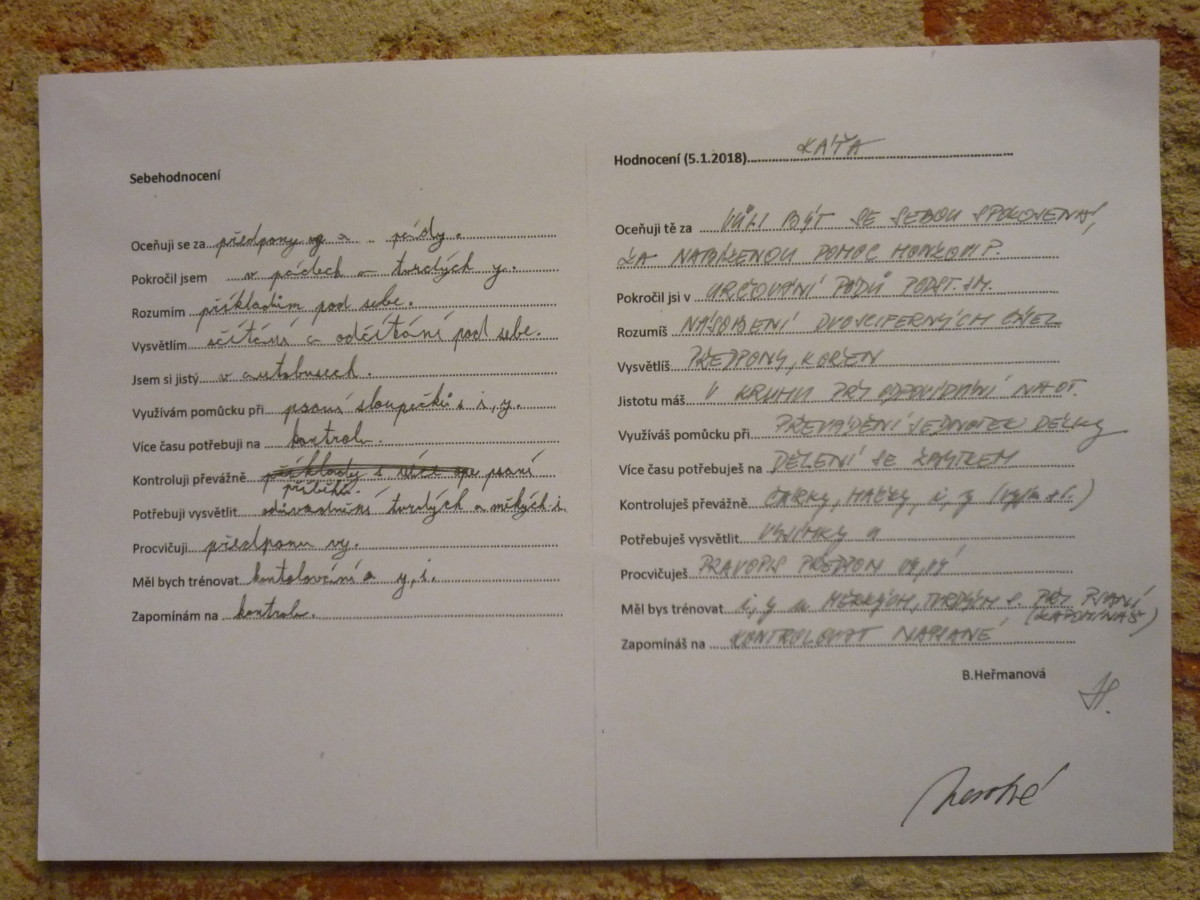 Sebehodnocení
Oceňuji se za předpony vy a pády.
Pokročil jsem v pádech a tvrdých y.
Rozumím příkladům pod sebe.
Vysvětlím sčítání a odčítání pod sebe.
Jsem si jistý v autobusech.
Využívám pomůcku při psaní sloupečků s i, y.
Více času potřebuji na kontrolu.
Kontroluji převážně psaní
příběhů.
Potřebuji vysvětlit odůvodnění tvrdých a měkých i.
Procvičuji předponu vy.
Měl bych trénovat kontolování a y, i.
Zapomínám na kontrolu.
Hodnocení (5.1.2018) KÁŤA
Oceňuji tě za VŮLI BÝT SE SEBOU SPOKOJENÁ,
ZA NABÍZENOU POMOC HONZOVI P.
Pokročil jsi v URČOVÁNÍ PÁDŮ PODST. JM.
Rozumíš NÁSOBENÍ DVOJCIFERNÝCH ČÍSEL
Vysvětlíš PŘEDPONY, KOŘEN
Jistotu máš V KRUHU PŘI ODPOVÍDÁNÍ NA OT.
Využíváš pomůcku při PŘEVÁDĚNÍ JEDNOTEK DÉLKY
Více času potřebuješ na DĚLENÍ SE ZBYTKEM
Kontroluješ převážně ČÁRKY, HÁČKY, i, y
Potřebuješ vysvětlit VÝJIMKY
Procvičuješ PRAVOPIS PŘEDPON VY, VÝ
Měl bys trénovat i, y u MĚKKÝCH, TVRDÝCH S. PŘI PSANÍ
(ZAPOMÍNÁŠ)
Zapomínáš na KONTROLOVAT NAPSANÉ
B.Heřmanová
H.